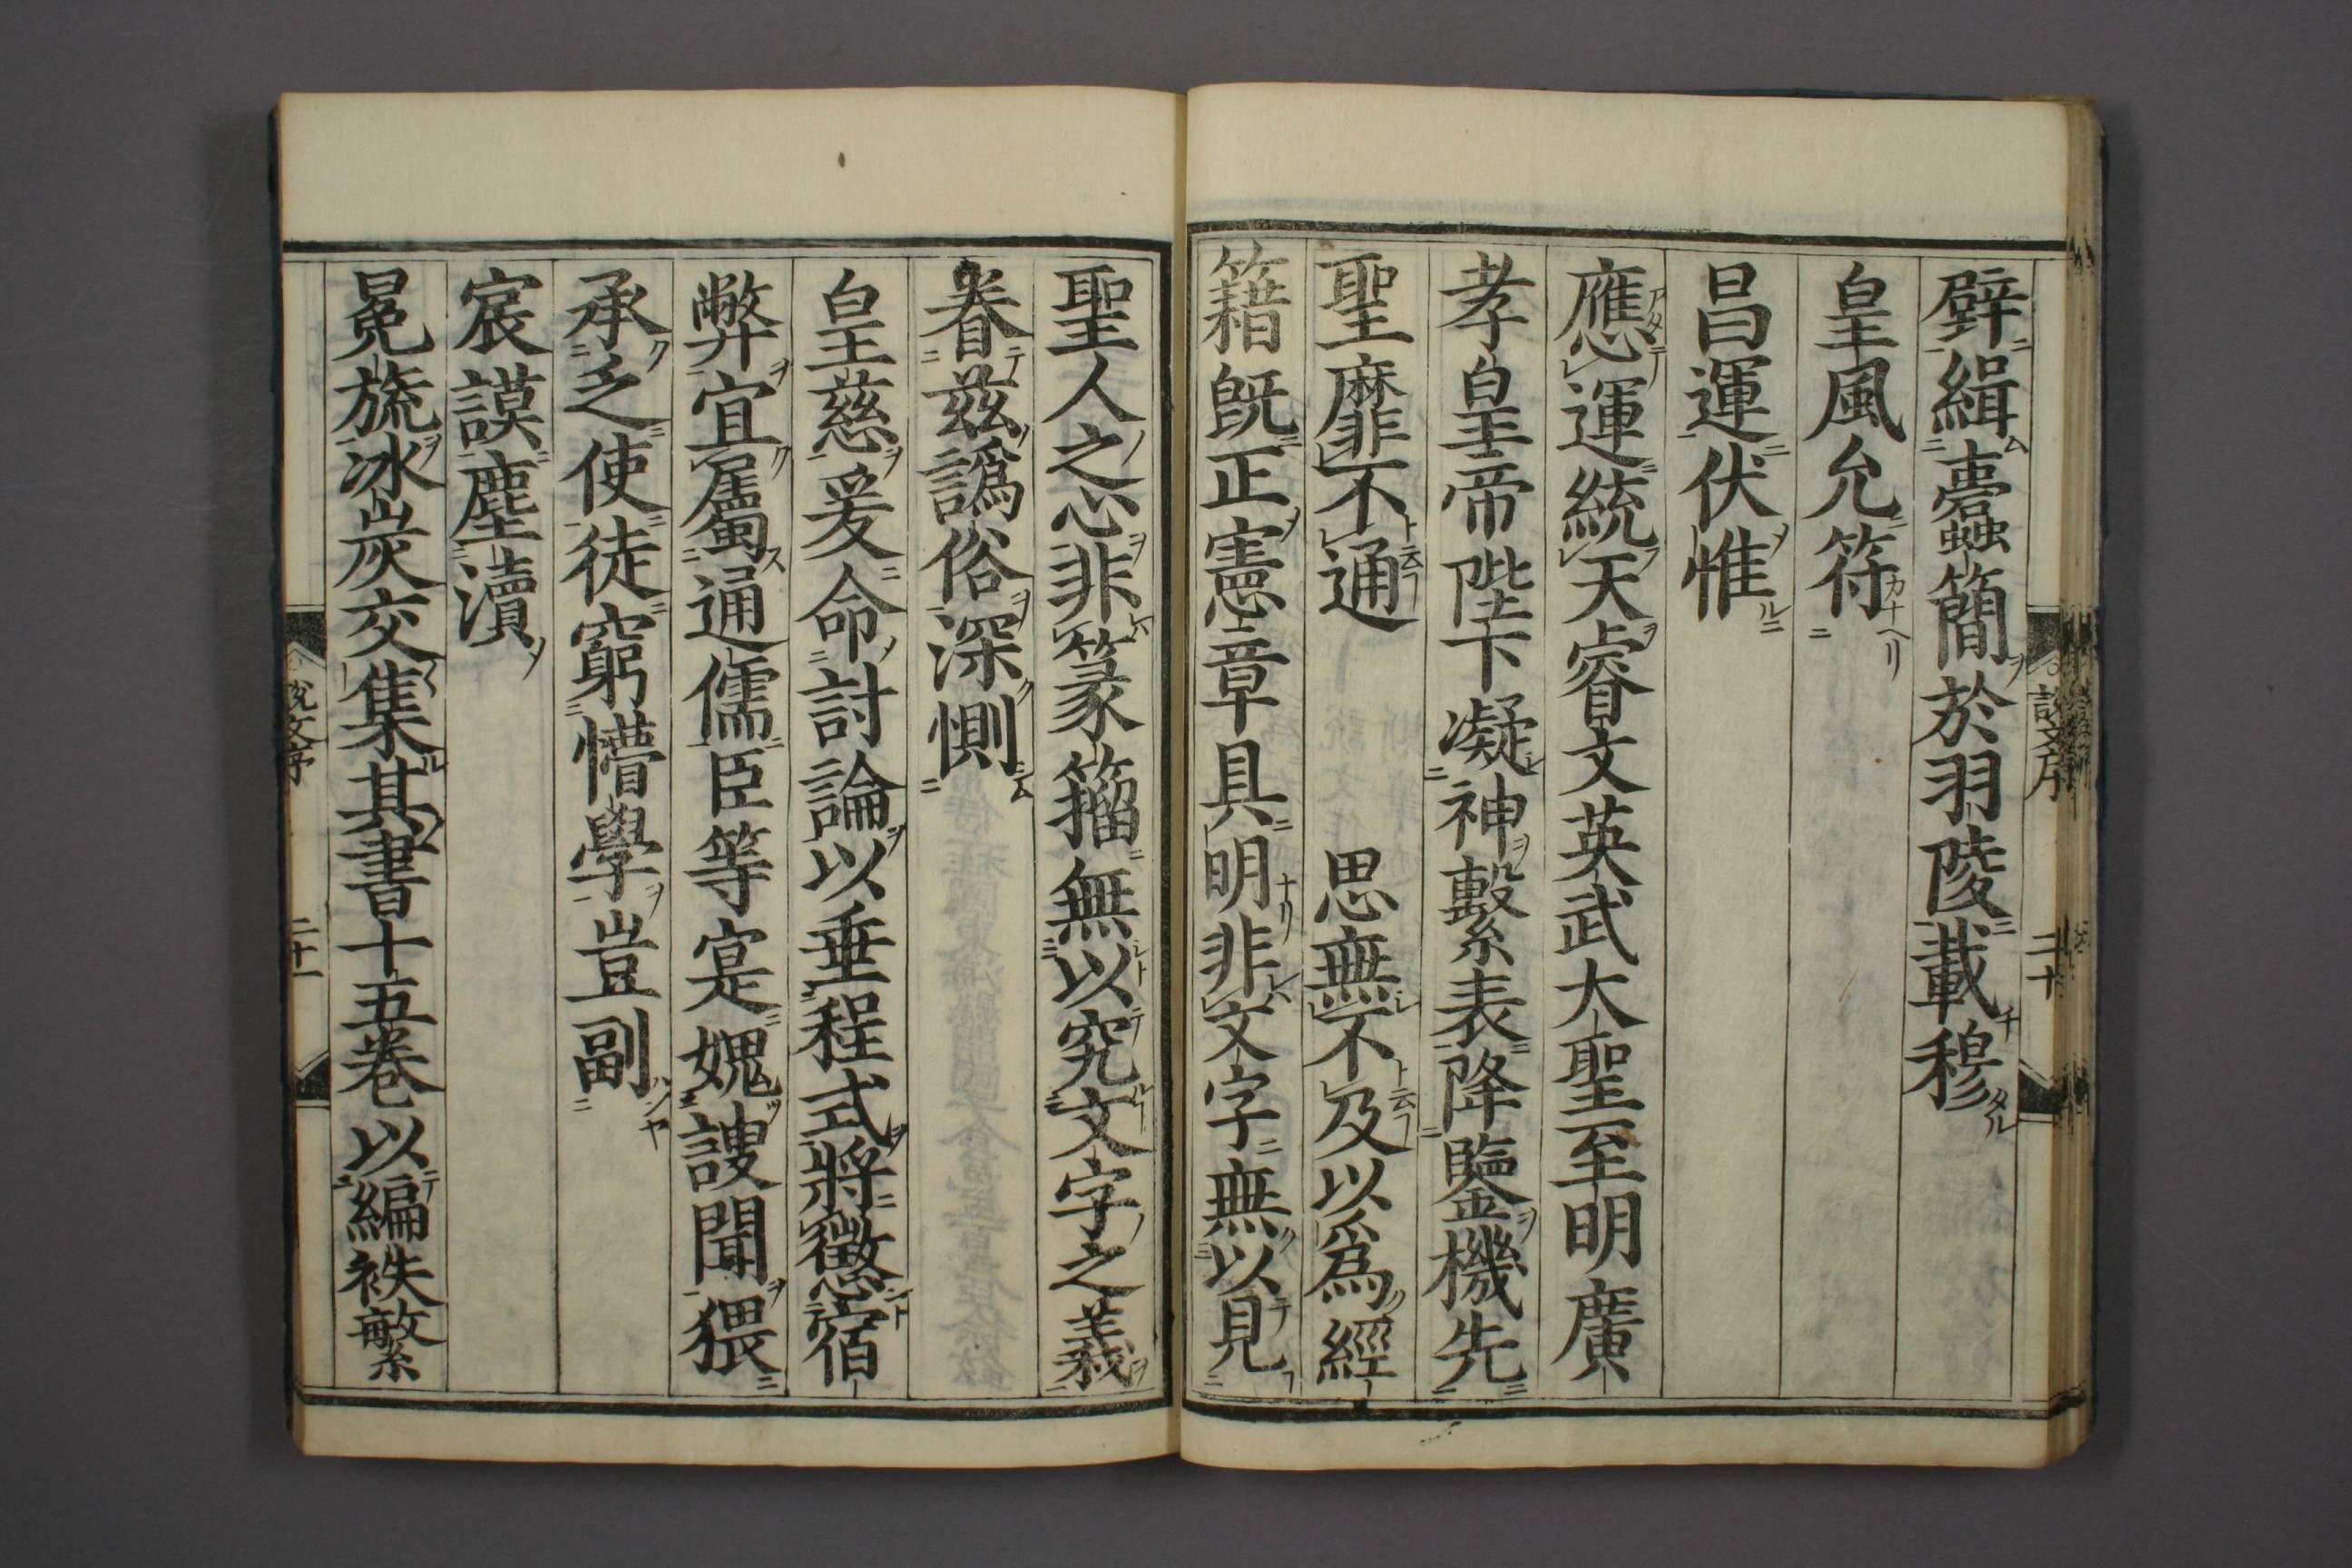 壁緝蠹簡於羽陵載穆
皇風允符
昌運伏惟
應運統天睿文英武大聖至明廣
孝皇帝陛下凝神繫表降鑒機先
聖靡不通　思無不及以爲經
籍旣正憲章具明非文字無以見
聖人之心非篆籀無以究文字之義
眷兹譌俗深惻
皇慈爰命討論以垂程式將懲宿
弊宜屬通儒臣等寔媿謏聞猥
承乏使徒窮懵學豈副
宸謨塵瀆
冕旒冰炭交集其書十五卷以編袟繁
說文序
二十
說文序
二十一